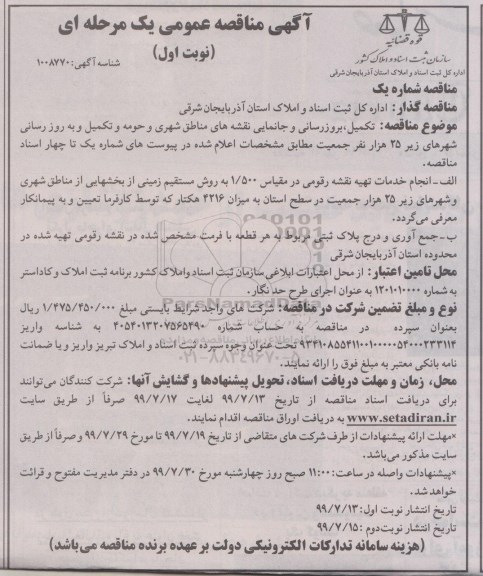 آگهی مناقصه عمومی یک مرحله ای
(نوبت اول)
شناسه آگهی: ۱۰۰۸۷۷۰
قوه قضائیه
سازمان ثبت اسناد و املاک کشور
اداره کل ثبت اسناد و املاک استان آذربایجان شرقی
مناقصه شماره یک
مناقصه گذار: اداره کل ثبت اسناد و املاک استان آذربایجان شرقی
موضوع مناقصه: تکمیل،بروزرسانی و جانمایی نقشه های مناطق شهری و حومه و تکمیل و به روز رسانی
شهرهای زیر ۲۵ هزار نفر جمعیت مطابق مشخصات اعلام شده در پیوست های شماره یک تا چهار اسناد
مناقصه.
الف-انجام خدمات تهیه نقشه رقومی در مقیاس ۱/۵۰۰ به روش مستقیم زمینی از بخشهایی از مناطق شهری
و شهرهای زیر ۲۵ هزار جمعیت در سطح استان به میزان ۴۲۱۶ هکتار که توسط کارفرما تعیین و به پیمانکار
معرفی می‌گردد.
ب-جمع آوری و درج پلاک ثبتی مربوط به هر قطعه با فرمت مشخص شده در نقشه رقومی تهیه شده در
محدوده استان آذربایجان شرقی
محل تامین اعتبار: از محل اعتبارات ابلاغی سازمان ثبت اسناد واملاک کشور برنامه ثبت املاک و کاداستر
به شماره ۱۲۰۱۰۱۰۰۰۰ به عنوان اجرای طرح حد نگار.
نوع و مبلغ تضمین شرکت در مناقصه: شرکت های واجد شرایط بایستی مبلغ ۱/۴۷۵/۴۵۰/۰۰۰ ریال
بعنوان سپرده در مناقصه به حساب شماره ۴۰۵۴۰۱۳۲۰۷۵۶۵۴۹۰ به شناسه واریز
۹۳۴۱۰۸۵۵۴۱۱۰۰۱۰۰۰۰۰۵۴۰۰۰۲۳۳۱۱۴ تحت عنوان وجوه سپرده ثبت اسناد و املاک تبریز واریز و یا ضمانت
نامه بانکی معتبر به مبلغ فوق را ارائه نمایند.
محل، زمان و مهلت دریافت اسناد، تحویل پیشنهادها و گشایش آنها: شرکت کنندگان می‌توانند
برای دریافت اسناد مناقصه از تاریخ ۹۹/۷/۱۳ لغایت ۹۹/۷/۱۷ صرفاً از طریق سایت
www.setadiran.ir به دریافت اوراق مناقصه اقدام نمایند.
×مهلت ارائه پیشنهادات از طرف شرکت های متقاضی از تاریخ ۹۹/۷/۱۹ تا مورخ ۹۹/۷/۲۹ و صرفاً از طریق
سایت مذکور می‌باشد.
×پیشنهادات واصله در ساعت: ۱۱:۰۰ صبح روز چهارشنبه مورخ ۹۹/۷/۳۰ در دفتر مدیریت مفتوح و قرائت
خواهد شد.
تاریخ انتشار نوبت اول: ۹۹/۷/۱۳
تاریخ انتشار نوبت دوم: ۹۹/۷/۱۵
(هزینه سامانه تدارکات الکترونیکی دولت بر عهده برنده مناقصه می باشد)
ParsNamadData
۰۲۱-۸۸۳۴۹۶۷۰-۵